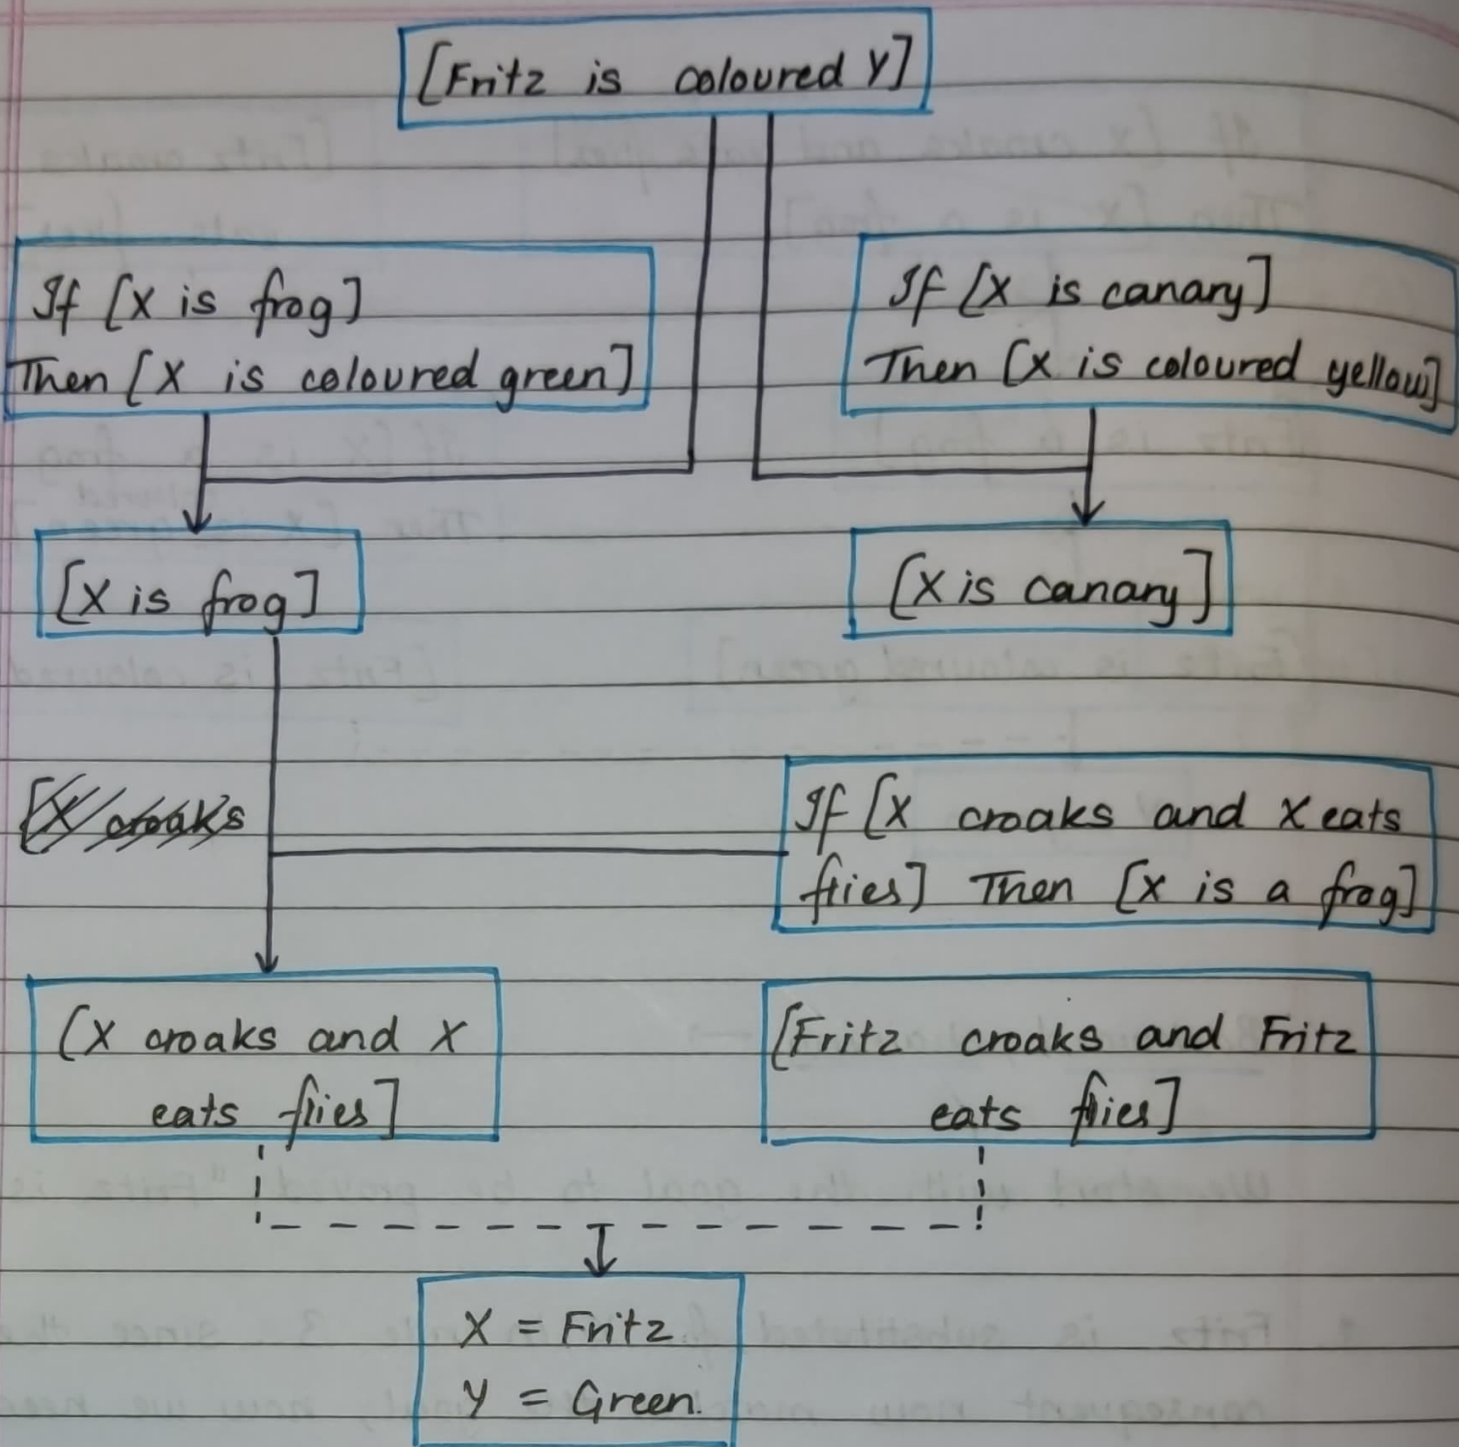 [Fritz is coloured Y]
If [X is frog]
Then [X is coloured green]
If [X is canary]
Then [X is coloured yellow]
[X is frog]
[X is canary]
[X croaks
If [X croaks and X eats
flies] Then [X is a frog]
[X croaks and X
eats flies]
[Fritz croaks and Fritz
eats flies]
X = Fritz
Y = Green.